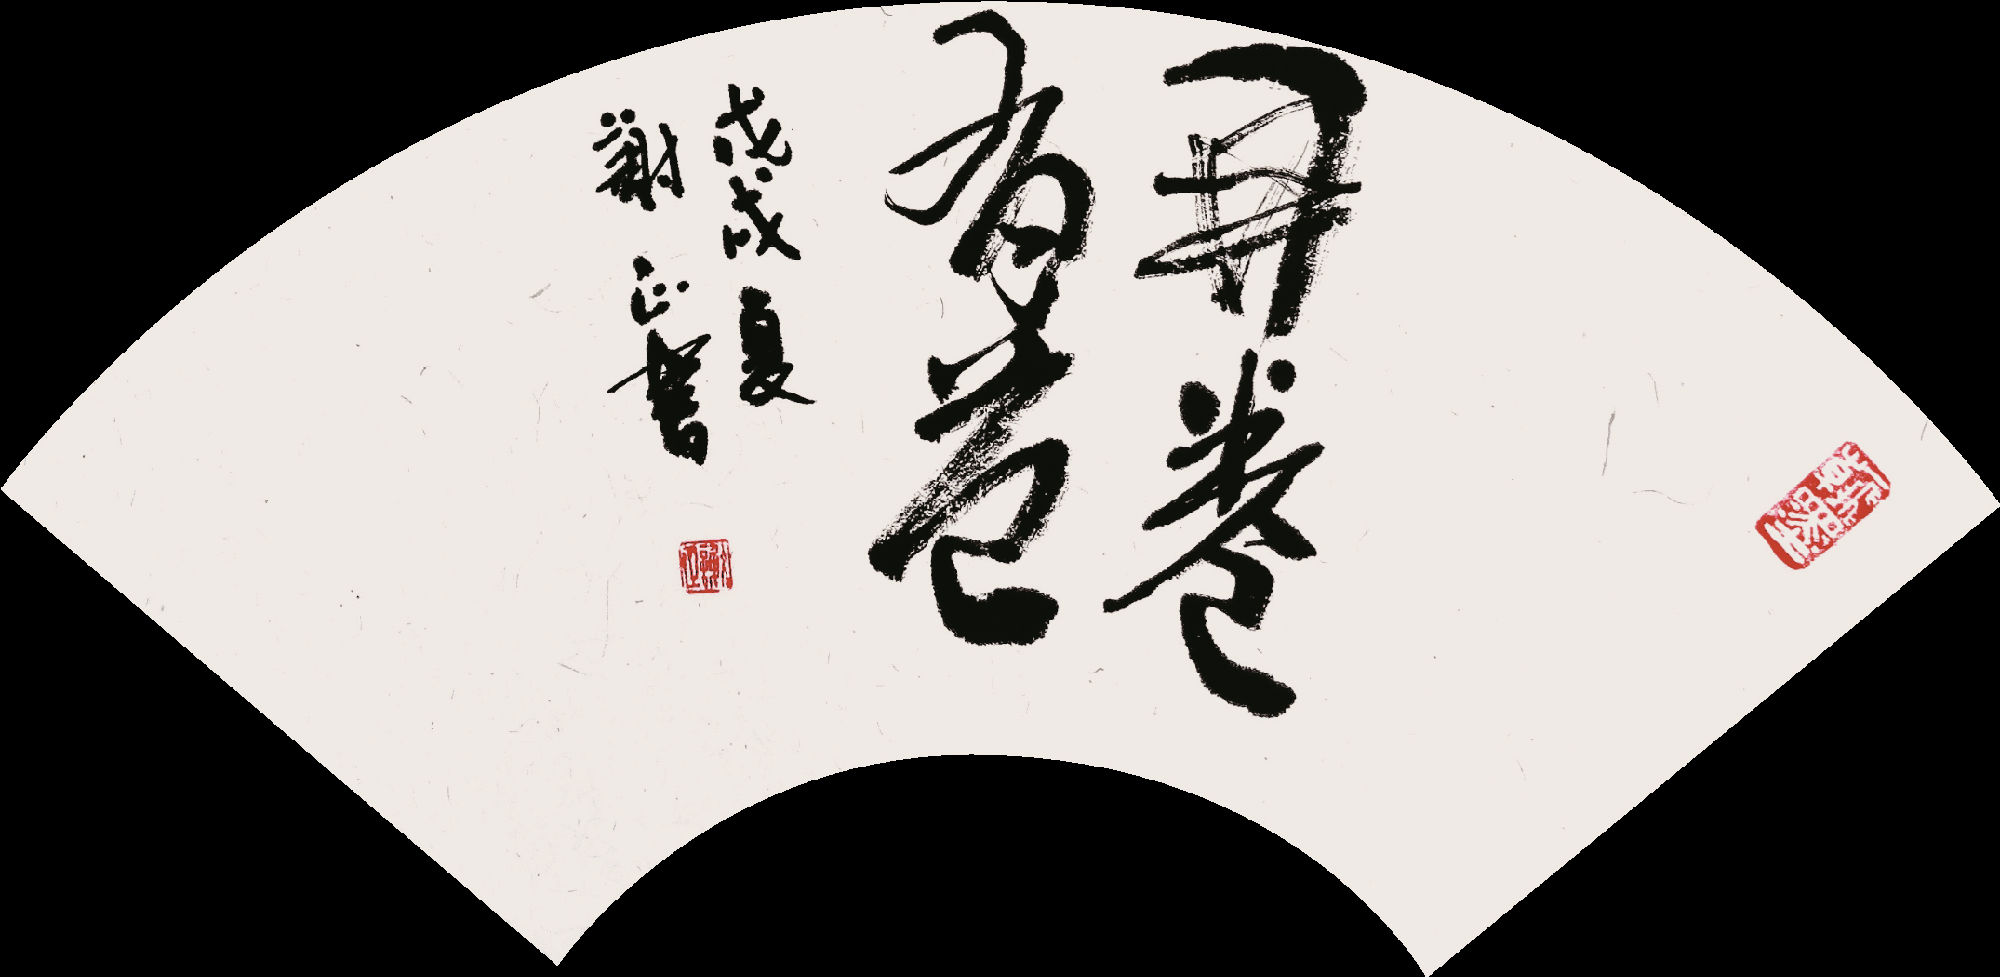 開卷
有益
戊戌夏
謝正書